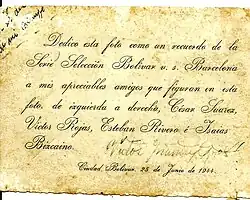 Dedico esta foto como un recuerdo de la
Serie Selección Bolívar v. s. Barcelona
a mis apreciables amigos que figuran en esta
foto, de izquierda a derecho, César Suarez,
Víctor Rojas, Esteban Rivero é Isaias
Bizcaino.
Ciudad Bolívar, 25 de Junio de 1944.